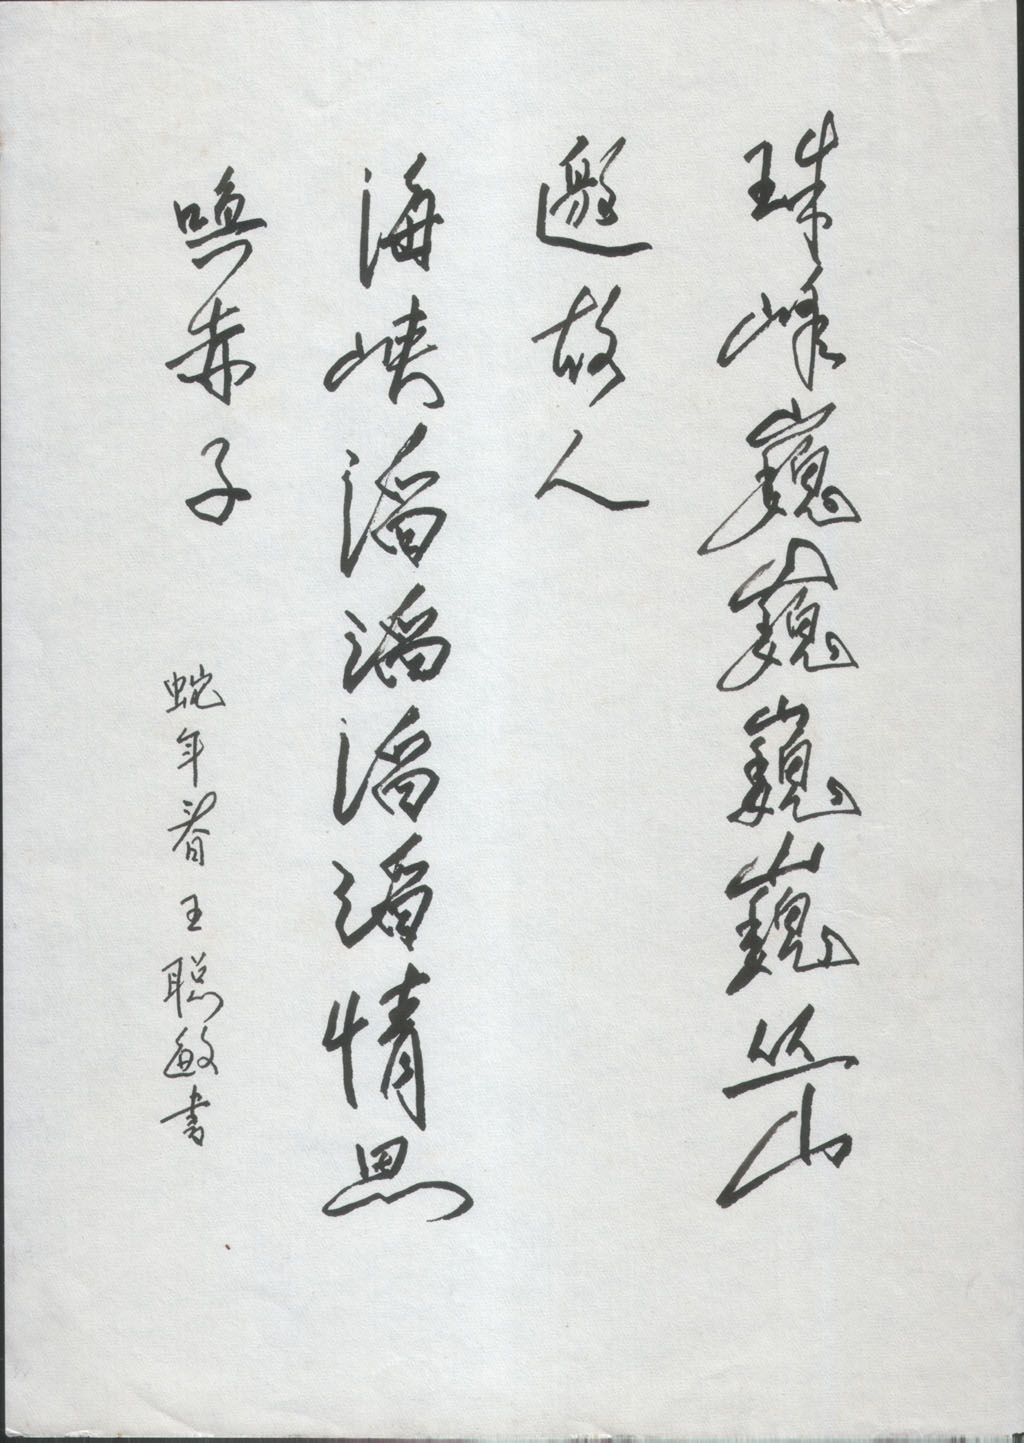 珠峰巍巍巍巍丛山
邀故人
海峡滔滔滔滔情思
唤赤子 蛇年春王聪敏书